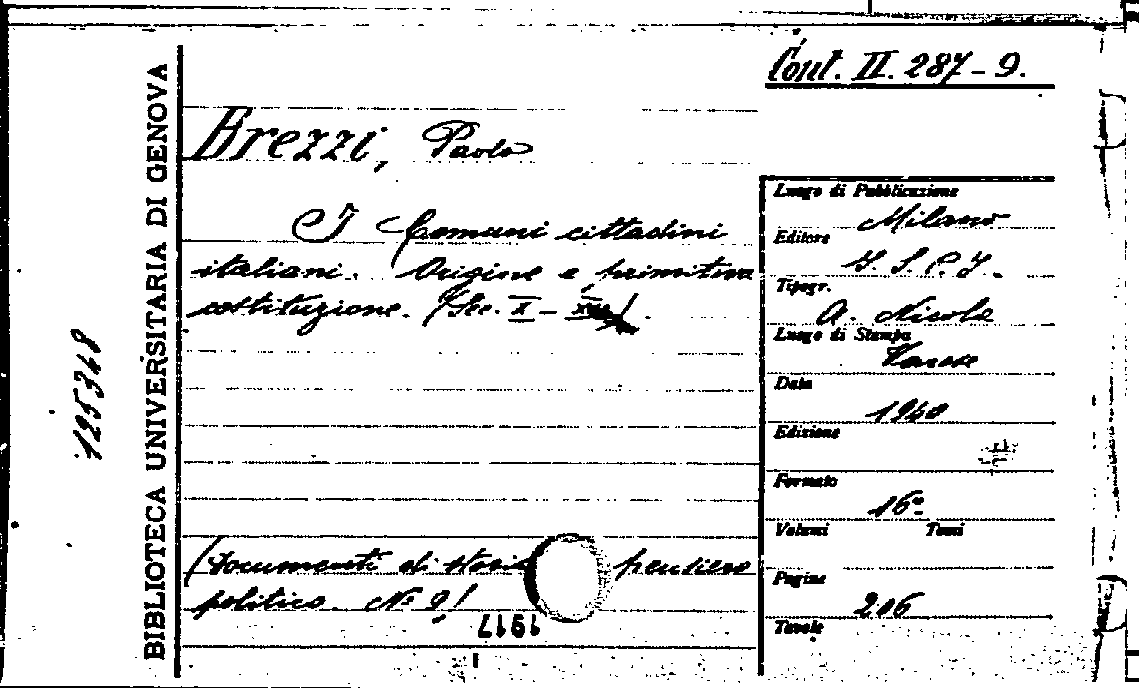 Cont. II. 287-9.
BIBLIOTECA UNIVERSITARIA DI GENOVA
125348
Brezzi, Paolo
I Comuni cittadini
italiani. Origine e primitiva
costituzione. (Sec. X -
(Documenti di storia pensiero
politico. No 9)
1917
Luogo di Pubblicazione
Milano
Editore
I. S. P. I.
Tipogr.
A. Nicola
Luogo di Stampa
Varese
Data
1940
Edizione
Formato
16º
Volumi Tomi
Pagine
206
Tavole